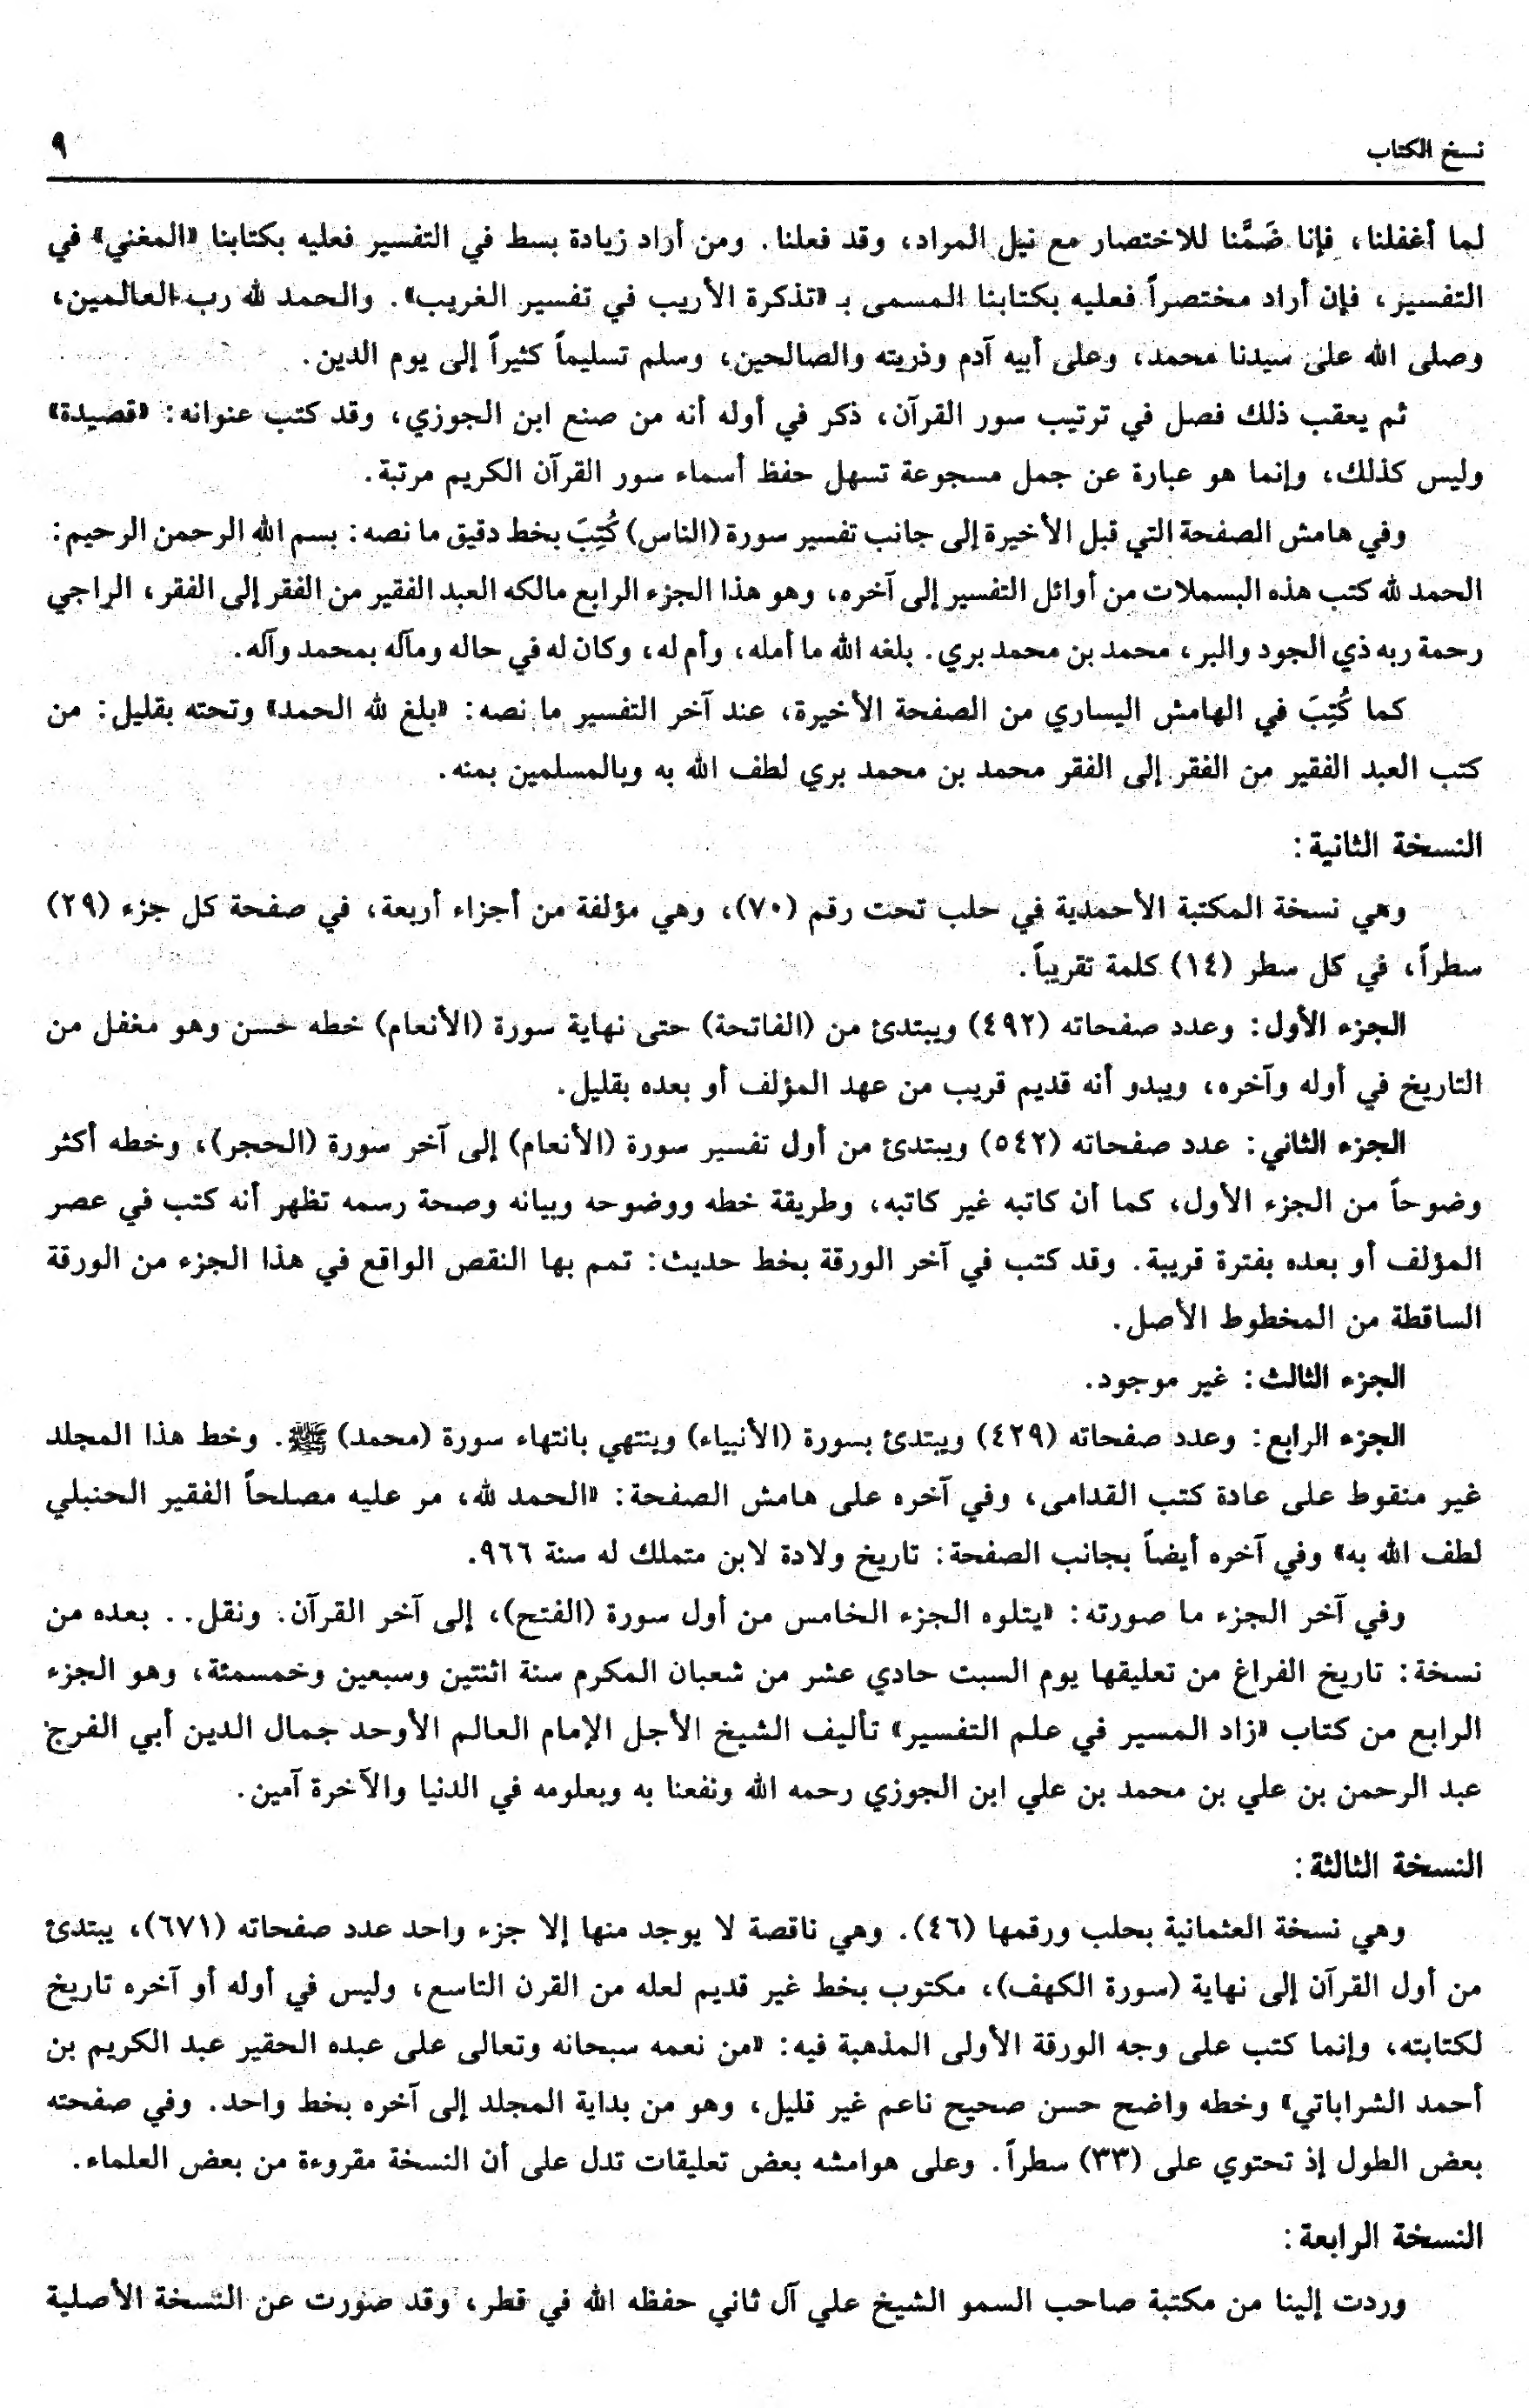 نسخ الكتاب ٩
لما أغفلنا، فإنا ضَمَّنا للاختصار مع نيل المراد، وقد فعلنا. ومن أراد زيادة بسط في التفسير فعليه بكتابنا «المغني» في
التفسير، فإن أراد مختصراً فعليه بكتابنا المسمى بـ «تذكرة الأريب في تفسير الغريب». والحمد لله رب العالمين،
وصلى الله على سيدنا محمد، وعلى أبيه آدم وذريته والصالحين، وسلم تسليماً كثيراً إلى يوم الدين.
ثم يعقب ذلك فصل في ترتيب سور القرآن، ذكر في أوله أنه من صنع ابن الجوزي، وقد كتب عنوانه: «قصيدة»
وليس كذلك، وإنما هو عبارة عن جمل مسجوعة تسهل حفظ أسماء سور القرآن الكريم مرتبة.
وفي هامش الصفحة التي قبل الأخيرة إلى جانب تفسير سورة (الناس) كُتِبَ بخط دقيق ما نصه: بسم الله الرحمن الرحيم:
الحمد لله كتب هذه البسملات من أوائل التفسير إلى آخره، وهو هذا الجزء الرابع مالكه العبد الفقير من الفقر إلى الفقر، الراجي
رحمة ربه ذي الجود والبر، محمد بن محمد بري. بلغه الله ما أمله، وأم له، وكان له في حاله ومآله بمحمد وآله.
كما كُتِبَ في الهامش اليساري من الصفحة الأخيرة، عند آخر التفسير ما نصه: «بلغ لله الحمد» وتحته بقليل: من
كتب العبد الفقير من الفقر إلى الفقر محمد بن محمد بري لطف الله به وبالمسلمين بمنه.
النسخة الثانية:
وهي نسخة المكتبة الأحمدية في حلب تحت رقم (٧٠)، وهي مؤلفة من أجزاء أربعة، في صفحة كل جزء (٢٩)
سطراً، في كل سطر (١٤) كلمة تقريباً.
الجزء الأول: وعدد صفحاته (٤٩٢) ويبتدئ من (الفاتحة) حتى نهاية سورة (الأنعام) خطه حسن وهو مغفل من
التاريخ في أوله وآخره، ويبدو أنه قديم قريب من عهد المؤلف أو بعده بقليل.
الجزء الثاني: عدد صفحاته (٥٤٢) ويبتدئ من أول تفسير سورة (الأنعام) إلى آخر سورة (الحجر)، وخطه أكثر
وضوحاً من الجزء الأول، كما أن كاتبه غير كاتبه، وطريقة خطه ووضوحه وبيانه وصحة رسمه تظهر أنه كتب في عصر
المؤلف أو بعده بفترة قريبة. وقد كتب في آخر الورقة بخط حديث: تمم بها النقص الواقع في هذا الجزء من الورقة
الساقطة من المخطوط الأصل.
الجزء الثالث: غير موجود.
الجزء الرابع: وعدد صفحاته (٤٢٩) ويبتدئ بسورة (الأنبياء) وينتهي بانتهاء سورة (محمد) ﷺ. وخط هذا المجلد
غير منقوط على عادة كتب القدامى، وفي آخره على هامش الصفحة: «الحمد لله، مر عليه مصلحاً الفقير الحنبلي
لطف الله به» وفي آخره أيضاً بجانب الصفحة: تاريخ ولادة لابن متملك له سنة ٩٦٦.
وفي آخر الجزء ما صورته: «يتلوه الجزء الخامس من أول سورة (الفتح)، إلى آخر القرآن. ونقل.. بعده من
نسخة: تاريخ الفراغ من تعليقها يوم السبت حادي عشر من شعبان المكرم سنة اثنتين وسبعين وخمسمئة، وهو الجزء
الرابع من كتاب «زاد المسير في علم التفسير» تأليف الشيخ الأجل الإمام العالم الأوحد جمال الدين أبي الفرج
عبد الرحمن بن علي بن محمد بن علي ابن الجوزي رحمه الله ونفعنا به وبعلومه في الدنيا والآخرة آمين.
النسخة الثالثة:
وهي نسخة العثمانية بحلب ورقمها (٤٦). وهي ناقصة لا يوجد منها إلا جزء واحد عدد صفحاته (٦٧١)، يبتدئ
من أول القرآن إلى نهاية (سورة الكهف)، مكتوب بخط غير قديم لعله من القرن التاسع، وليس في أوله أو آخره تاريخ
لكتابته، وإنما كتب على وجه الورقة الأولى المذهبة فيه: «من نعمه سبحانه وتعالى على عبده الحقير عبد الكريم بن
أحمد الشراباتي» وخطه واضح حسن صحيح ناعم غير قليل، وهو من بداية المجلد إلى آخره بخط واحد. وفي صفحته
بعض الطول إذ تحتوي على (٣٣) سطراً. وعلى هوامشه بعض تعليقات تدل على أن النسخة مقروءة من بعض العلماء.
النسخة الرابعة:
وردت إلينا من مكتبة صاحب السمو الشيخ علي آل ثاني حفظه الله في قطر، وقد صورت عن النسخة الأصلية